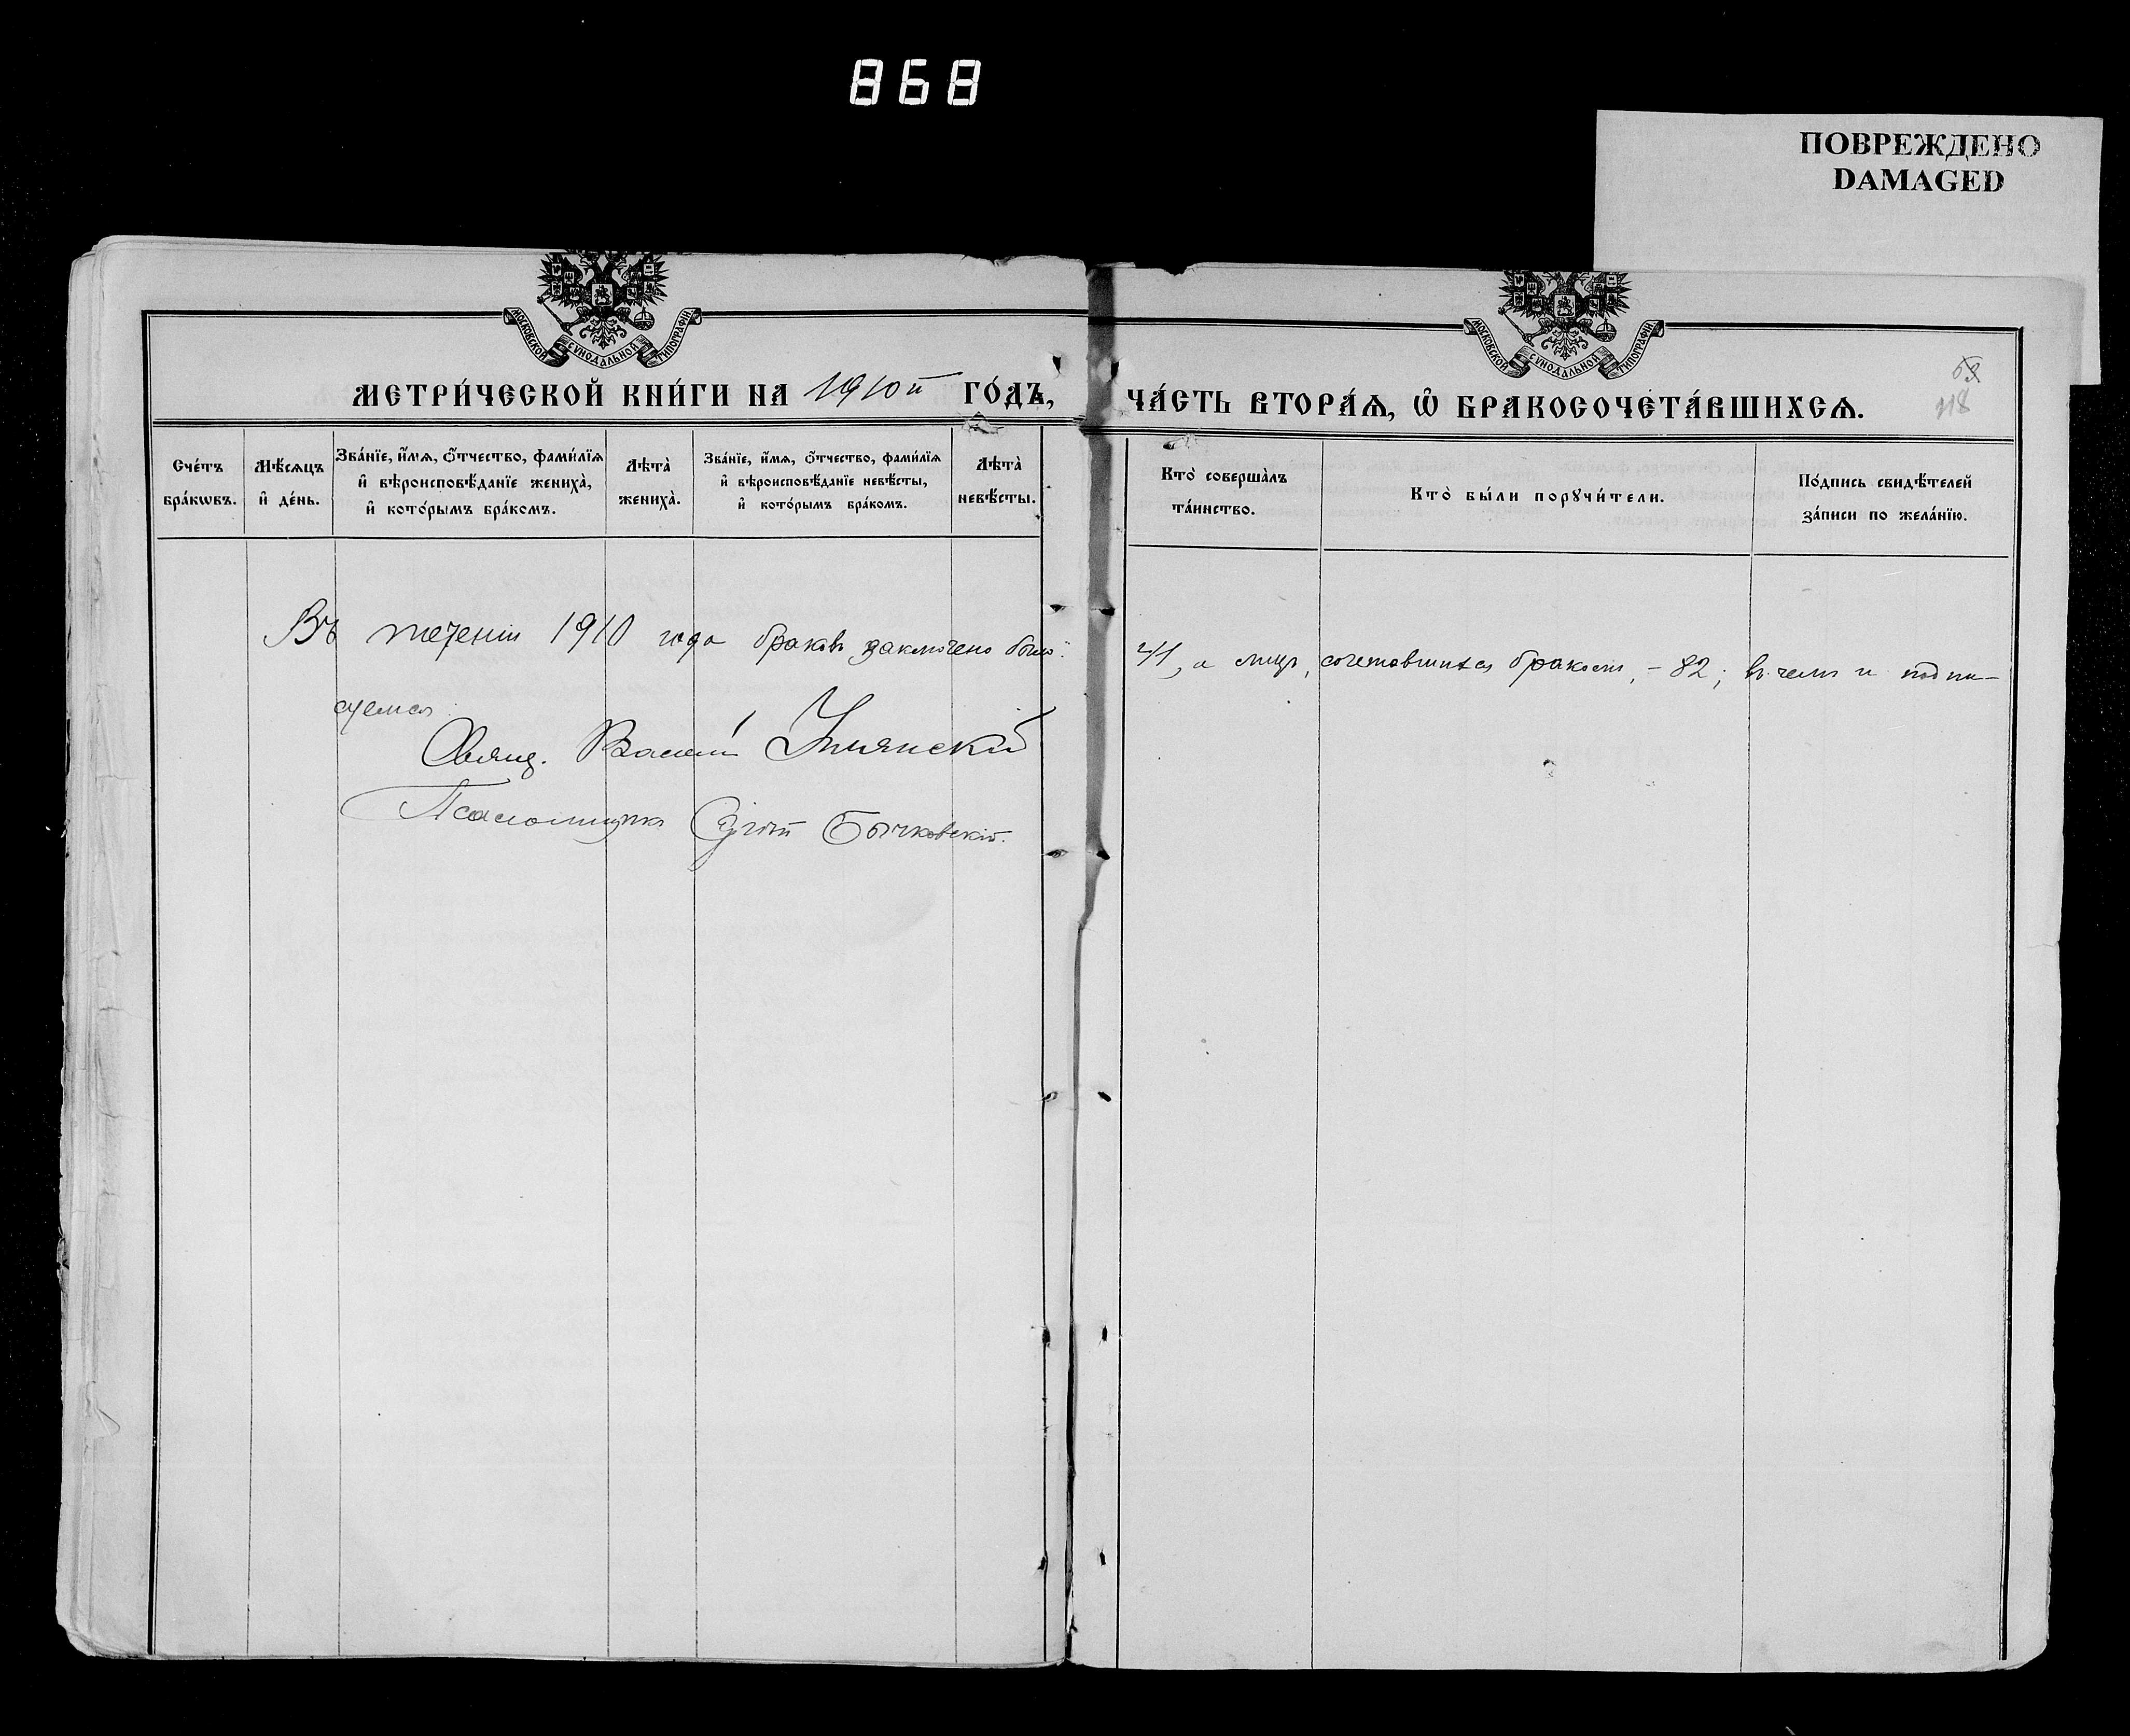 868
ПОВРЕЖДЕНО
DAMAGED
МОСКОВСКОЙ СѴНОДАЛЬНОЙ ТИПОГРАФІИ
МОСКОВСКОЙ СѴНОДАЛЬНОЙ ТИПОГРАФІИ
МЕТРИ́ЧЕСКОЙ КНИ́ГИ НА 1910й ГО́ДЪ,
ЧА́СТЬ ВТОРА́Ѧ, Ѽ БРАКОСОЧЕТА́ВШИХСѦ.
118
Сче́тъ
бра́кѡвъ.
Мѣ́сѧцъ
и҆ де́нь.
Зва́нїе, и҆́мѧ, ѻ҆́тчество, фами́лїѧ
и҆ вѣроисповѣ́данїе жениха̀,
и҆ кото́рымъ бра́комъ.
Лѣта̀
жениха̀.
Зва́нїе, и҆́мѧ, ѻ҆́тчество, фами́лїѧ
и҆ вѣроисповѣ́данїе невѣ́сты,
и҆ кото́рымъ бра́комъ.
Лѣта̀
невѣ́сты.
Кто̀ соверша́лъ
та́инство.
Кто̀ бы́ли порꙋчи́тели.
По́дпись свидѣ́телей
за́писи по жела́нїю.
Въ теченіи 1910 года браковъ заключено было:
41, а лицъ, сочетавшихся бракомъ, - 82; въ чемъ и подпи-
суемся:
Свящ. Василій
Псаломщикъ Бычковскій.